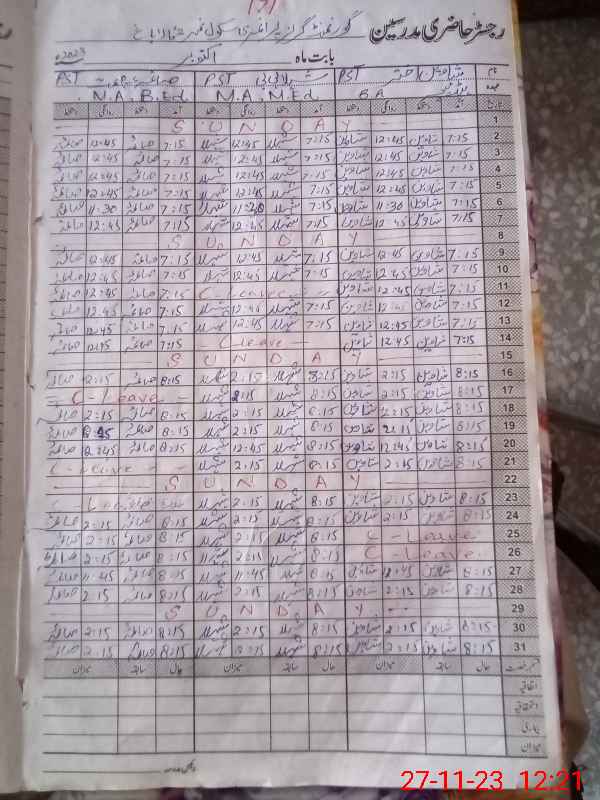 171
رجسٹر حاضری مدرسین گورنمنٹ گرلز پرائمری سکول نمبر
بابت ماہ اکتوبر 2023ء
نام اختر PST شہلا بی بی PST PST
عہدہ B.A M.A, M.Ed. M.A, B.Ed.
تاریخ آمد دستخط روانگی دستخط آمد دستخط روانگی دستخط آمد دستخط روانگی دستخط
1 SUNDAY
2 7:15 شاہین 12:45 شاہین 7:15 شہلا 12:45 شہلا 7:15 صائمہ 12:45 صائمہ
3 7:15 شاہین 12:45 شاہین 7:15 شہلا 12:45 شہلا 7:15 صائمہ 12:45 صائمہ
4 7:15 شاہین 12:45 شاہین 7:15 شہلا 12:45 شہلا 7:15 صائمہ 12:45 صائمہ
5 7:15 شاہین 12:45 شاہین 7:15 شہلا 12:45 شہلا 7:15 صائمہ 12:45 صائمہ
6 7:15 شاہین 11:30 شاہین 7:15 شہلا 11:30 شہلا 7:15 صائمہ 11:30 صائمہ
7 7:15 شاہین 12:45 شاہین 7:15 شہلا 12:45 شہلا 7:15 صائمہ 12:45 صائمہ
8 SUNDAY
9 7:15 شاہین 12:45 شاہین 7:15 شہلا 12:45 شہلا 7:15 صائمہ 12:45 صائمہ
10 7:15 شاہین 12:45 شاہین 7:15 شہلا 12:45 شہلا 7:15 صائمہ 12:45 صائمہ
11 7:15 شاہین 12:45 شاہین C Leave 7:15 صائمہ 12:45 صائمہ
12 7:15 شاہین 12:45 شاہین 7:15 شہلا 12:45 شہلا 7:15 صائمہ 12:45 صائمہ
13 7:15 شاہین 12:45 شاہین 7:15 شہلا 12:45 شہلا 7:15 صائمہ 12:45 صائمہ
14 7:15 شاہین 12:45 شاہین C Leave 7:15 صائمہ 12:45 صائمہ
15 SUNDAY
16 8:15 شاہین 2:15 شاہین 8:15 شہلا 2:15 شہلا 8:15 صائمہ 2:15 صائمہ
17 8:15 شاہین 2:15 شاہین 8:15 شہلا 2:15 شہلا C-Leave
18 8:15 شاہین 2:15 شاہین 8:15 شہلا 2:15 شہلا 8:15 صائمہ 2:15 صائمہ
19 8:15 شاہین 2:15 شاہین 8:15 شہلا 2:15 شہلا 8:15 صائمہ صائمہ
20 8:15 شاہین 12:45 شاہین 8:15 شہلا 12:45 شہلا 8:15 صائمہ 12:45 صائمہ
21 8:15 شاہین 2:15 شاہین 8:15 شہلا 2:15 شہلا C-Leave
22 SUNDAY
23 8:15 شاہین 2:15 شاہین 8:15 شہلا 2:15 شہلا Leave
24 8:15 شاہین 2:15 شاہین 8:15 شہلا 2:15 شہلا 8:15 صائمہ 2:15 صائمہ
25 C-Leave 8:15 شہلا 2:15 شہلا 8:15 صائمہ 2:15 صائمہ
26 C-Leave 8:15 شہلا 2:15 شہلا 8:15 صائمہ 2:15 صائمہ
27 8:15 شاہین 11:45 شاہین 8:15 شہلا 11:45 شہلا 8:15 صائمہ 11:45 صائمہ
28 8:15 شاہین 2:15 شاہین 8:15 شہلا 2:15 شہلا 8:15 صائمہ 2:15 صائمہ
29 SUNDAY
30 8:15 شاہین 2:15 شاہین 8:15 شہلا 2:15 شہلا 8:15 صائمہ 2:15 صائمہ
31 8:15 شاہین 2:15 شاہین 8:15 شہلا 2:15 شہلا 8:15 صائمہ 2:15 صائمہ
قسم رخصت حال سابقہ میزان حال سابقہ میزان حال سابقہ میزان
اتفاقیہ
استحقاقیہ
بیماری
میزان
27-11-23 12:21